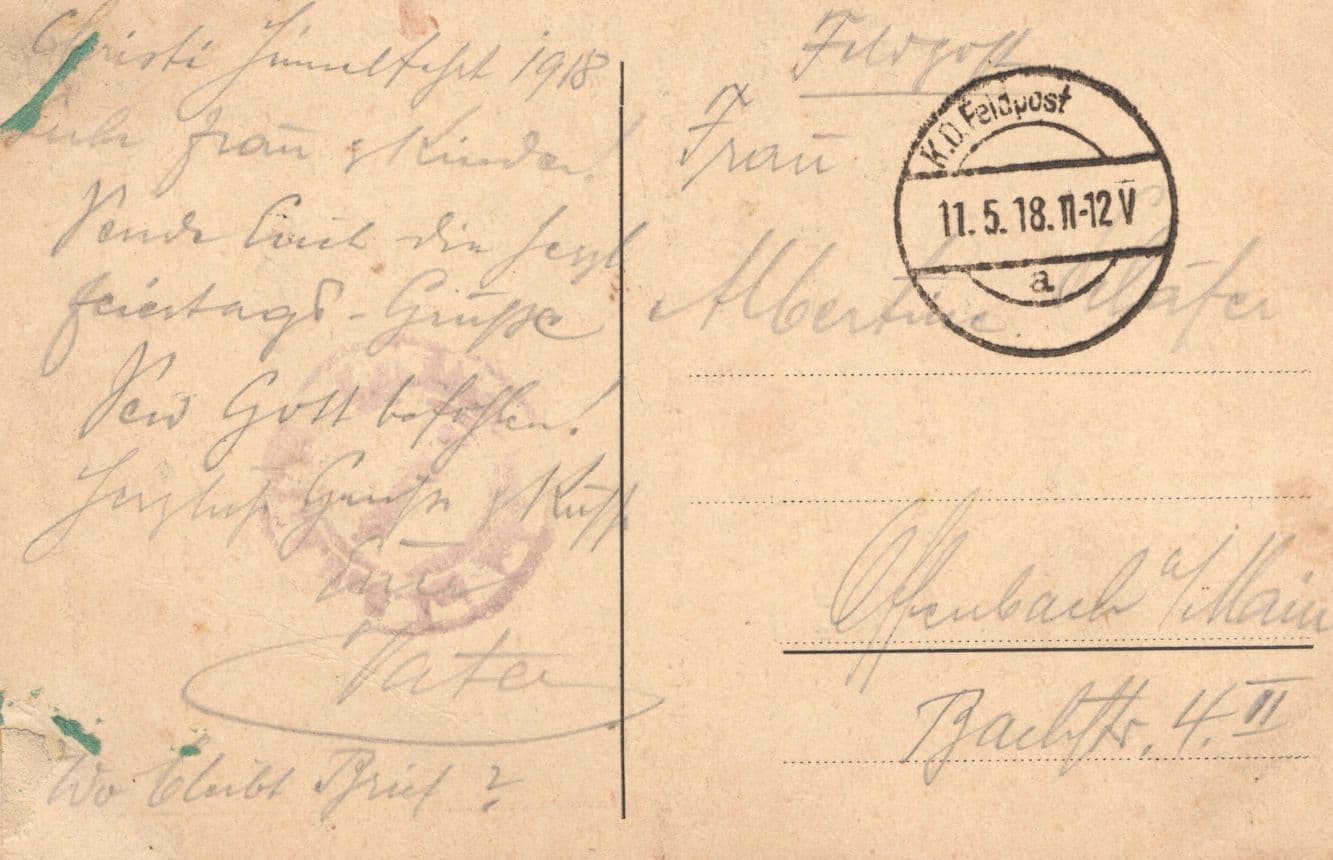 Christi Himmelfahrt 1918
Liebe Frau & Kinder!
Sende Euch die herzl
feiertags-Grüße
Seid Gott befohlen!
Herzliche Grüße & Kuß
Euer
Vater
Wo bleibt Brief?
Feldpost
Frau
Albertine Schäfer
Offenbach a/Main
Bachstr. 4. II
K.D. Feldpost
11.5.18. 11-12 V
a